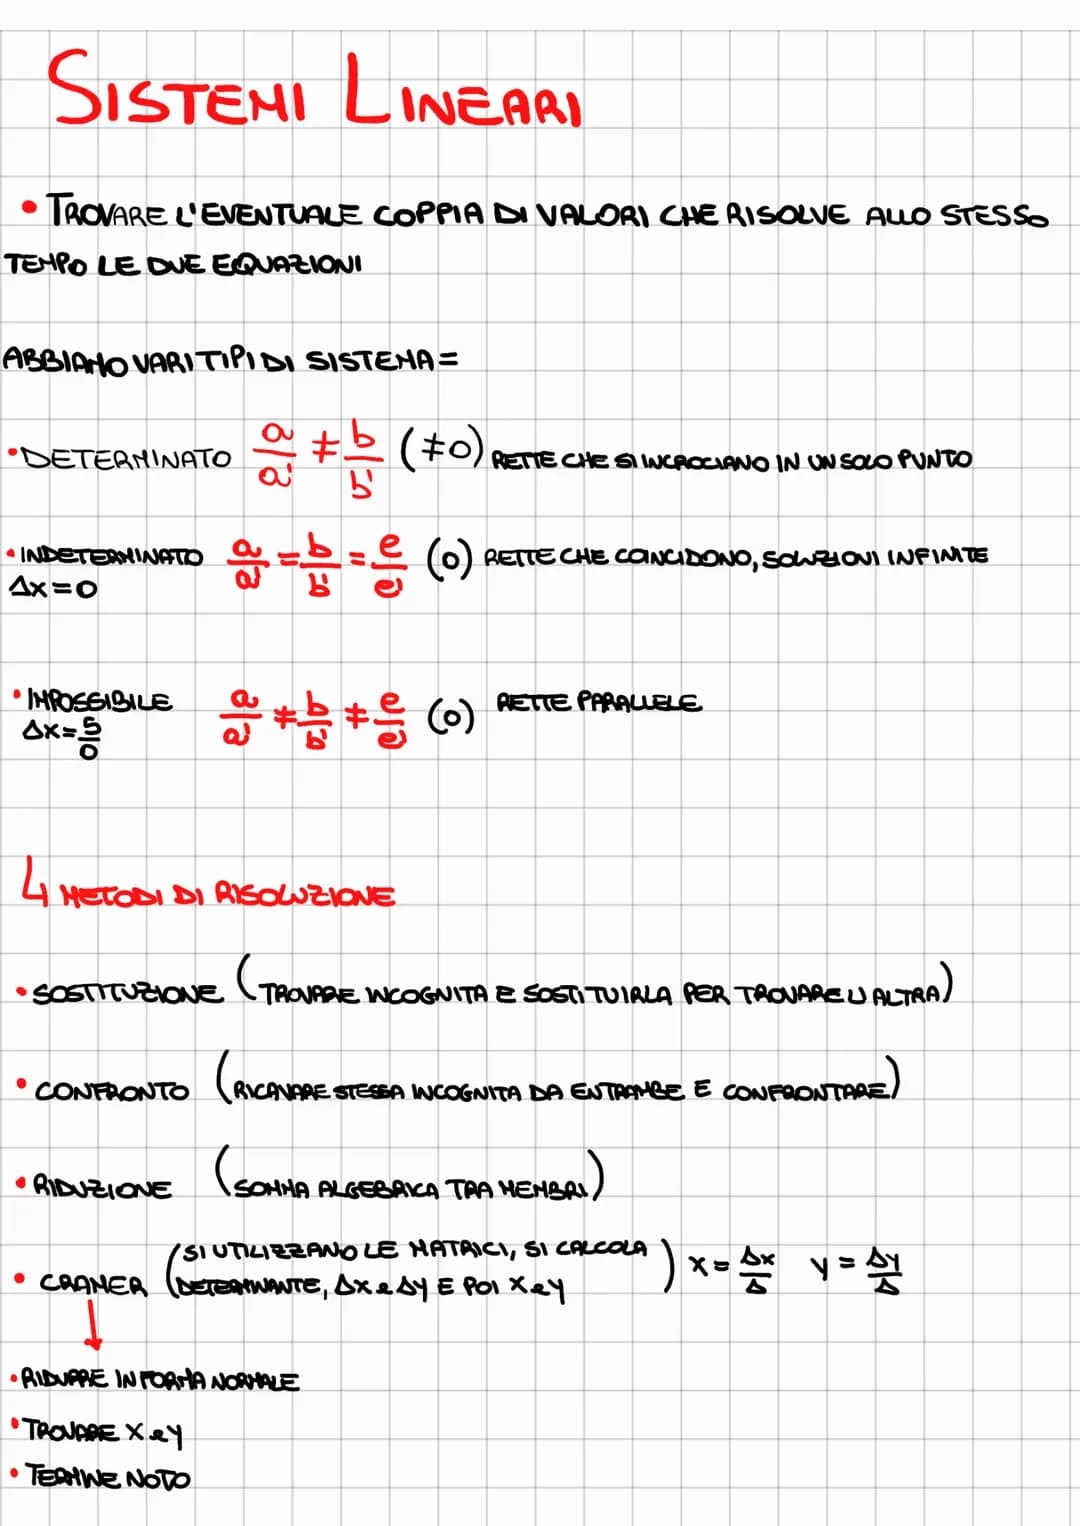 SISTEMI LINEARI
• TROVARE L'EVENTUALE COPPIA DI VALORI CHE RISOLVE ALLO STESSO
TEMPO LE DUE EQUAZIONI
ABBIAMO VARI TIPI DI SISTEMA =
• DETERMINATO a/a' ≠ b/b' (≠0) RETTE CHE SI INCROCIANO IN UN SOLO PUNTO
• INDETERMINATO a/a' = b/b' = e/e' (0) RETTE CHE COINCIDONO, SOLUZIONI INFINITE
Δx=0
• IMPOSSIBILE a/a' ≠ b/b' ≠ e/e' (0) RETTE PARALLELE
Δx=5/0
4 METODI DI RISOLUZIONE
• SOSTITUZIONE (TROVARE INCOGNITA E SOSTITUIRLA PER TROVARE L'ALTRA)
• CONFRONTO (RICAVARE STESSA INCOGNITA DA ENTRAMBE E CONFRONTARE)
• RIDUZIONE (SOMMA ALGEBRICA TRA MEMBRI)
• CRAMER (SI UTILIZZANO LE MATRICI, SI CALCOLA
DETERMINANTE, Δx e Δy E POI x e y) x = Δx/Δ y = Δy/Δ
↓
• RIDURRE IN FORMA NORMALE
• TROVARE x e y
• TERMINE NOTO